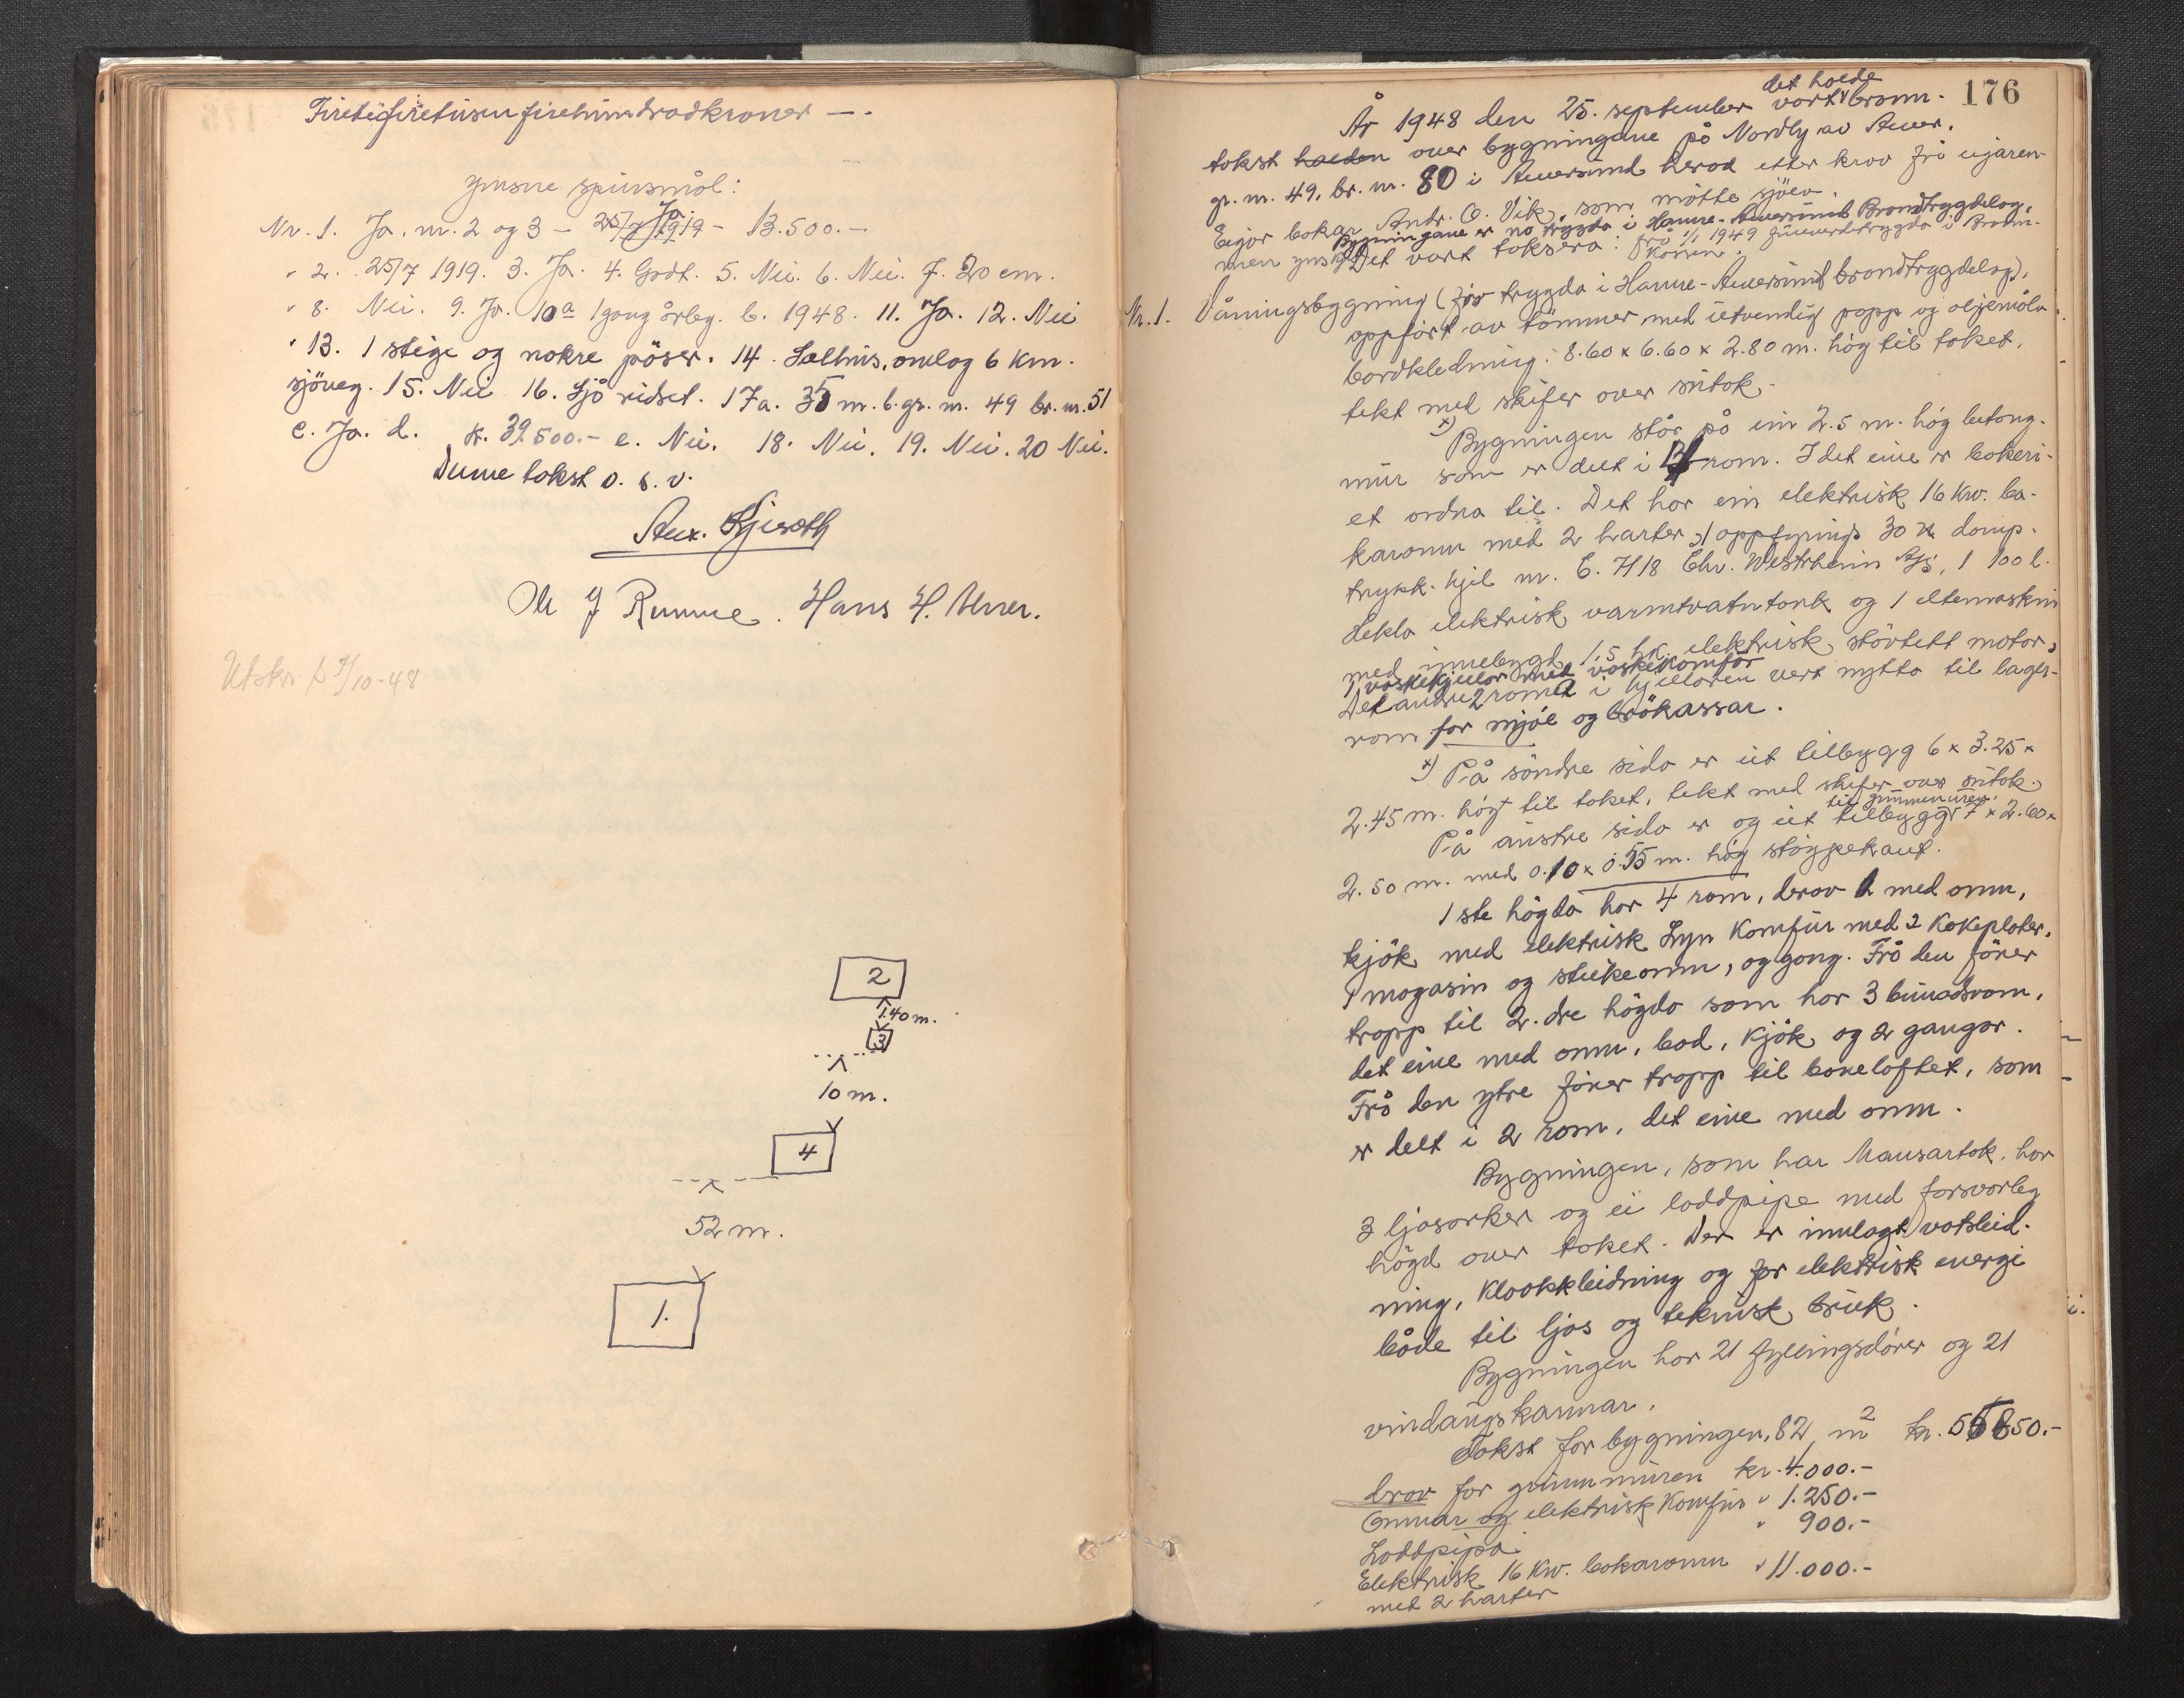 Firetifiretusenfirehundradkroner —.
Ymsne spursmål:
Nr. 1. Ja. nr. 2 og 3 – 25/7 1919 – Ja 13.500.–
" 2. 25/7 1919. 3. Ja. 4. Godt. 5. Nei. 6. Nei. 7. 20 cm.
" 8. Nei. 9. Ja. 10a 1 gong årleg. b. 1948. 11. Ja. 12. Nei
" 13. 1 stige og nokre pöser. 14. Sælhus, omlag 6 km.
sjöveg. 15. Nei 16. Sjö ridset. 17a. 35 m. b. gr. nr. 49 br. nr. 51
c. Ja. d. K. 39.500.– e. Nei. 18. Nei. 19. Nei. 20 Nei.
Denne takst o. s. v.
Hans H. Urner.
Utskr. 10-48
2
1.40 m.
3
10 m.
4
52 m.
1.
176
År 1948 den 25. september vart det halde brann-
takst halden over bygningane på Nordly av Aver,
gr. nr. 49, br. nr. 80 i Aversund herad etter krav frå eigaren
Eigar bakar Andr. O. Vik, som møtte sjöl.
Bygningane er no trygda i Hamre-Aversund Brandtrygdelag,
men ynskj frå 1/1 1949 trygda i Brann-
kassen. Det vart taksera:
Nr. 1. Våningsbygning (för trygda i Hamre-Aversund brandtrygdelag),
oppfört av tömmer med utvendig papp og oljemåla
bordkledning. 8.60 x 6.60 x 2.80 m. hög til taket,
tekt med skifer over sutak.
x) Bygningen står på ein 2.5 m. hög betong-
mur som er delt i 3 rom. I det eine er bakeri-
et ordna til. Det har ein elektrisk 16 Kw. ba-
karomn med 2 harter, 1 oppfyrings 30 damp-
trykk-kjel nr. E. 7118 Chr. Westrheim A/S, 1 100 l.
elektrisk varmtvatntank og 1 eltemaskin
med innebygd 1,5 hk. elektrisk stövtett motor,
1 vaskekjelar med vaskekomför
Det andre 2 roma i kjellaren vert nytta til lager-
rom for mjöl og brökassar.
x) På söndre sida er eit tilbygg 6 x 3.25 x
2.45 m. högt til taket, tekt med skifer over sutak.
På austre sida er og eit tilbygg til grunnmuren 7 x 2.60 x
2.50 m. med 0.10 x 0.55 m. hög stöypekant.
1ste högda har 4 rom, derav 2 med omn,
kjök med elektrisk Lyn Komfur med 2 Kokeplater,
1 magasin og steikeomn, og gang. Frå den förer
trapp til 2.dre högda som har 3 bunadsrom,
det eine med omn, bod, kjök og 2 gangar.
Frå den ytre förer trapp til baneloftet, som
er delt i 2 rom, det eine med omn.
Bygningen, som har Mansartak, har
3 ljosarker og ei loddpipe med forsvarleg
högd over taket. Der er innlagt vatsleid-
ning, Kloakkleidning og for elektrisk energi
både til ljos og teknisk bruk.
Bygningen har 21 fyllingsdörer og 21
vindaugskarmar.
Takst for bygningen, 82 m² kr. 55850.–
derav for grunnmuren kr. 4.000.–
Omnar og elektrisk Komfur " 1.250.–
Loddpipa " 900.–
Elektrisk 16 Kw. bakaromn " 11.000.–
med 2 harter